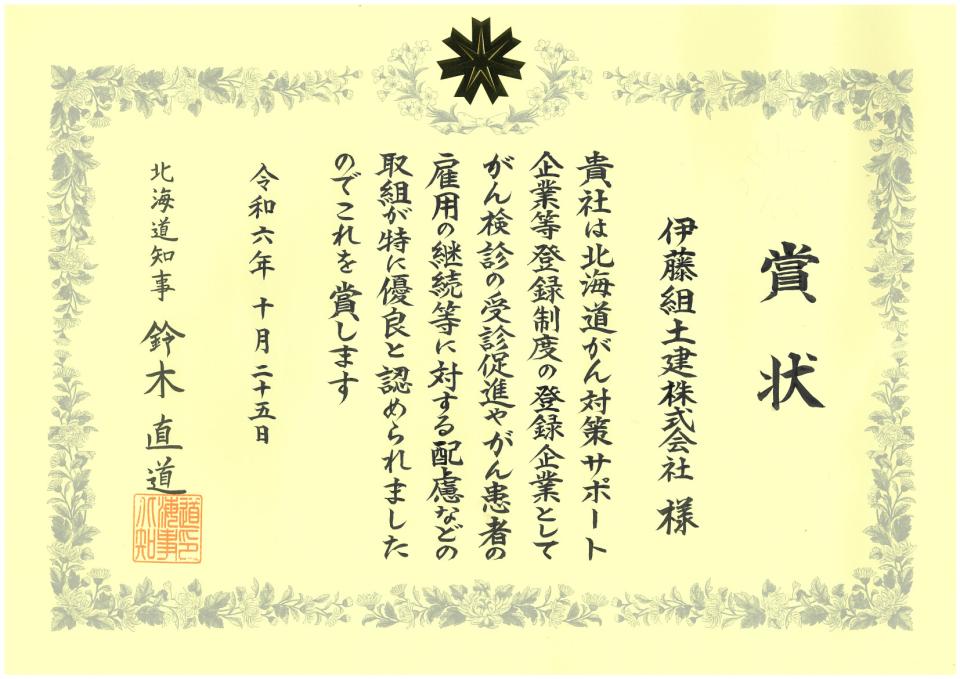 賞状
伊藤組土建株式会社 様
貴社は北海道がん対策サポート
企業等登録制度の登録企業として
がん検診の受診促進やがん患者の
雇用の継続等に対する配慮などの
取組が特に優良と認められました
のでこれを賞します
令和六年 十月 二十五日
北海道知事 鈴木直道
北海道知事印